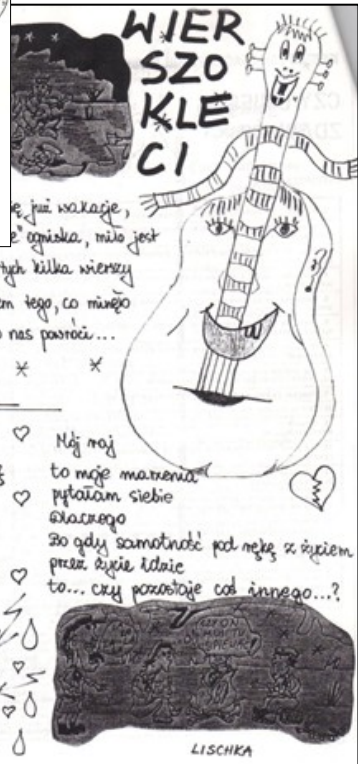 WIER
SZO
KLE
CI
już wakacje,
ogniska, miło jest
tych kilka wierszy
tego, co minęło
nas powróci...
Mój raj
to moje marzenia
pytałam siebie
Dlaczego
Bo gdy samotność pod rękę z życiem
przez życie idzie
to... czy pozostaje coś innego...?
LISCHKA